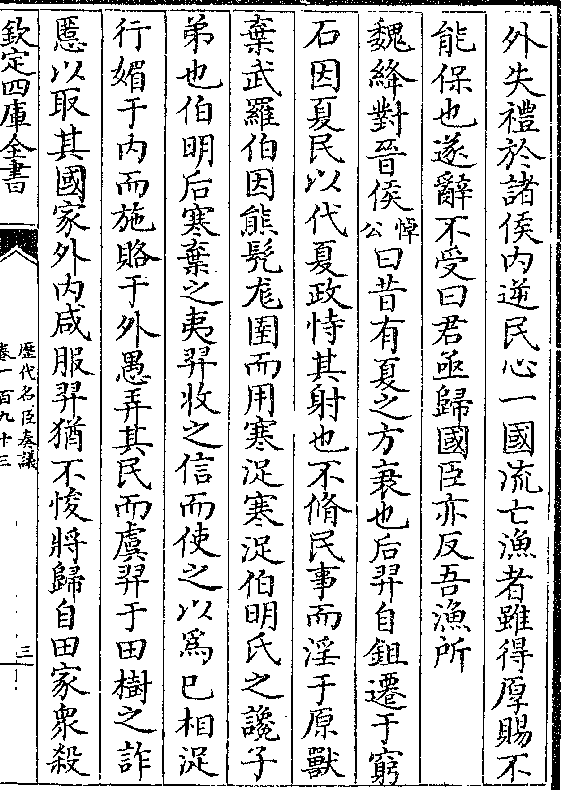 外失禮於諸侯內逆民心一國流亡漁者雖得厚賜不
能保也遂辭不受曰君亟歸國臣亦反吾漁所
魏絳對晉侯悼公曰昔有夏之方衰也后羿自鉏遷于窮
石因夏民以代夏政恃其射也不脩民事而淫于原獸
棄武羅伯因熊髠尨圉而用寒浞寒浞伯明氏之讒子
弟也伯明后寒棄之夷羿收之信而使之以為已相浞
行媚于內而施賂于外愚弄其民而虞羿于田樹之詐
慝以取其國家外內咸服羿猶不悛將歸自田家衆殺
欽定四庫全書
歷代名臣奏議
卷一百九十三
三